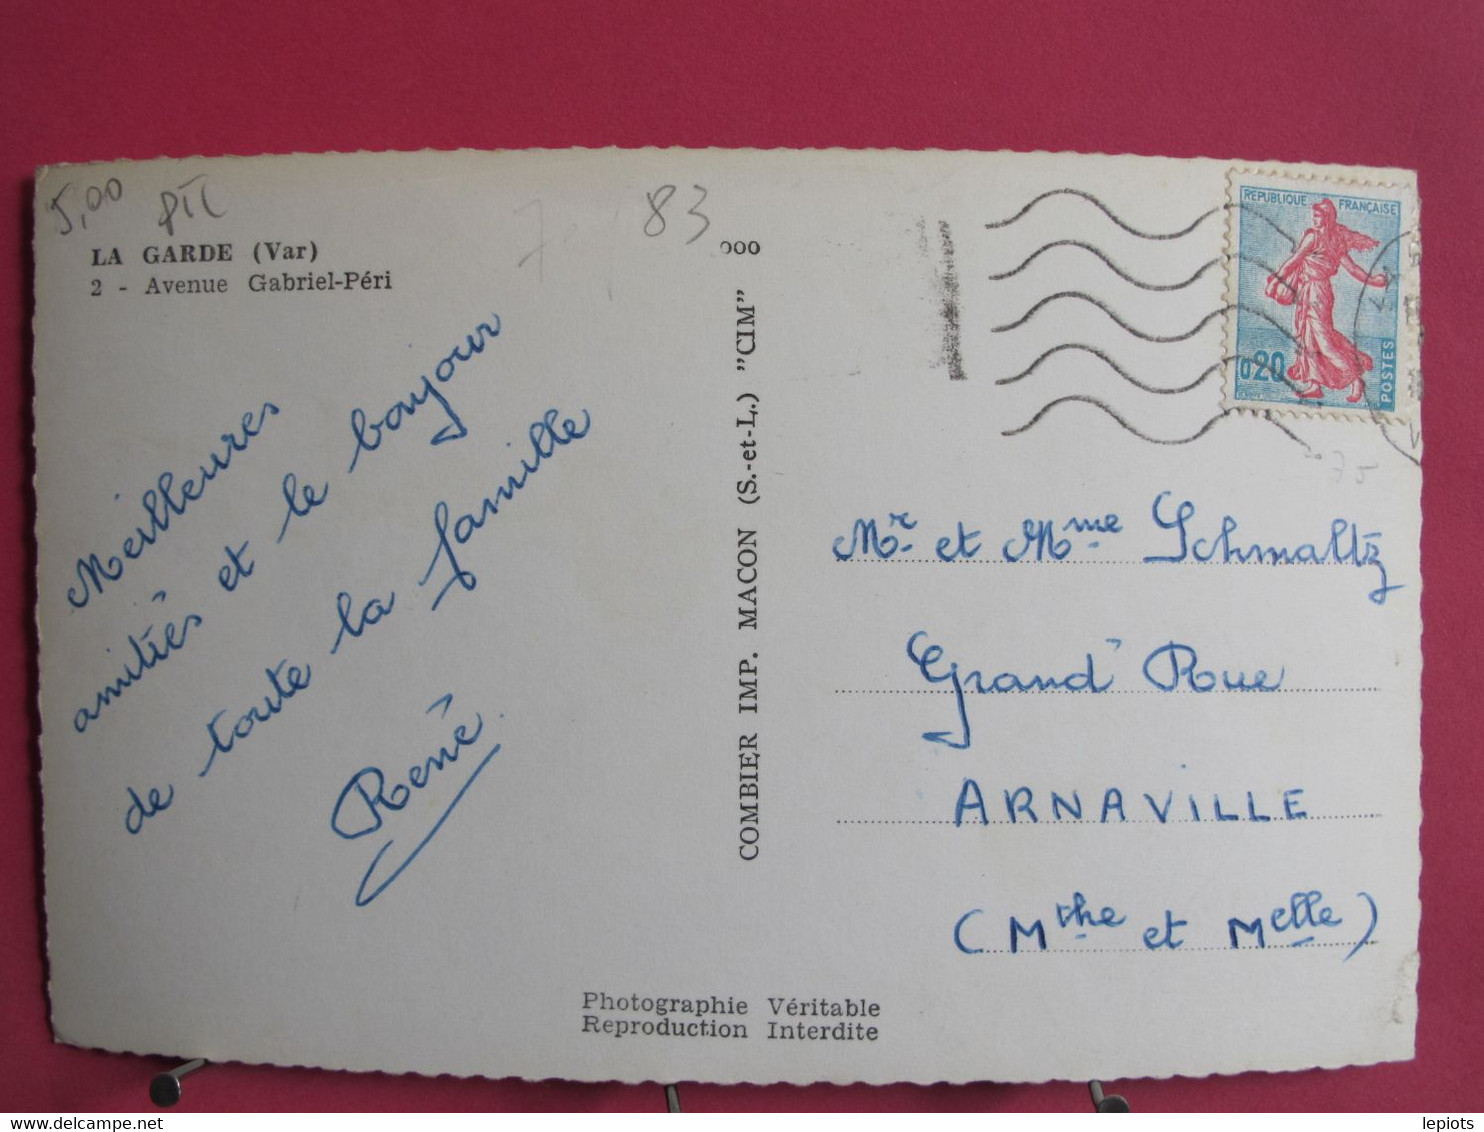 5,00
83
LA GARDE (Var)
2 - Avenue Gabriel-Péri
Meilleures
amitiés et le bonjour
de toute la famille
René
COMBIER IMP. MACON (S.-et-L.) "CIM"
REPUBLIQUE FRANÇAISE
0,20
POSTES
Mr et Mme Schmaltz
Grand' Rue
ARNAVILLE
(Mthe et Melle)
Photographie Véritable
Reproduction Interdite
lepiots